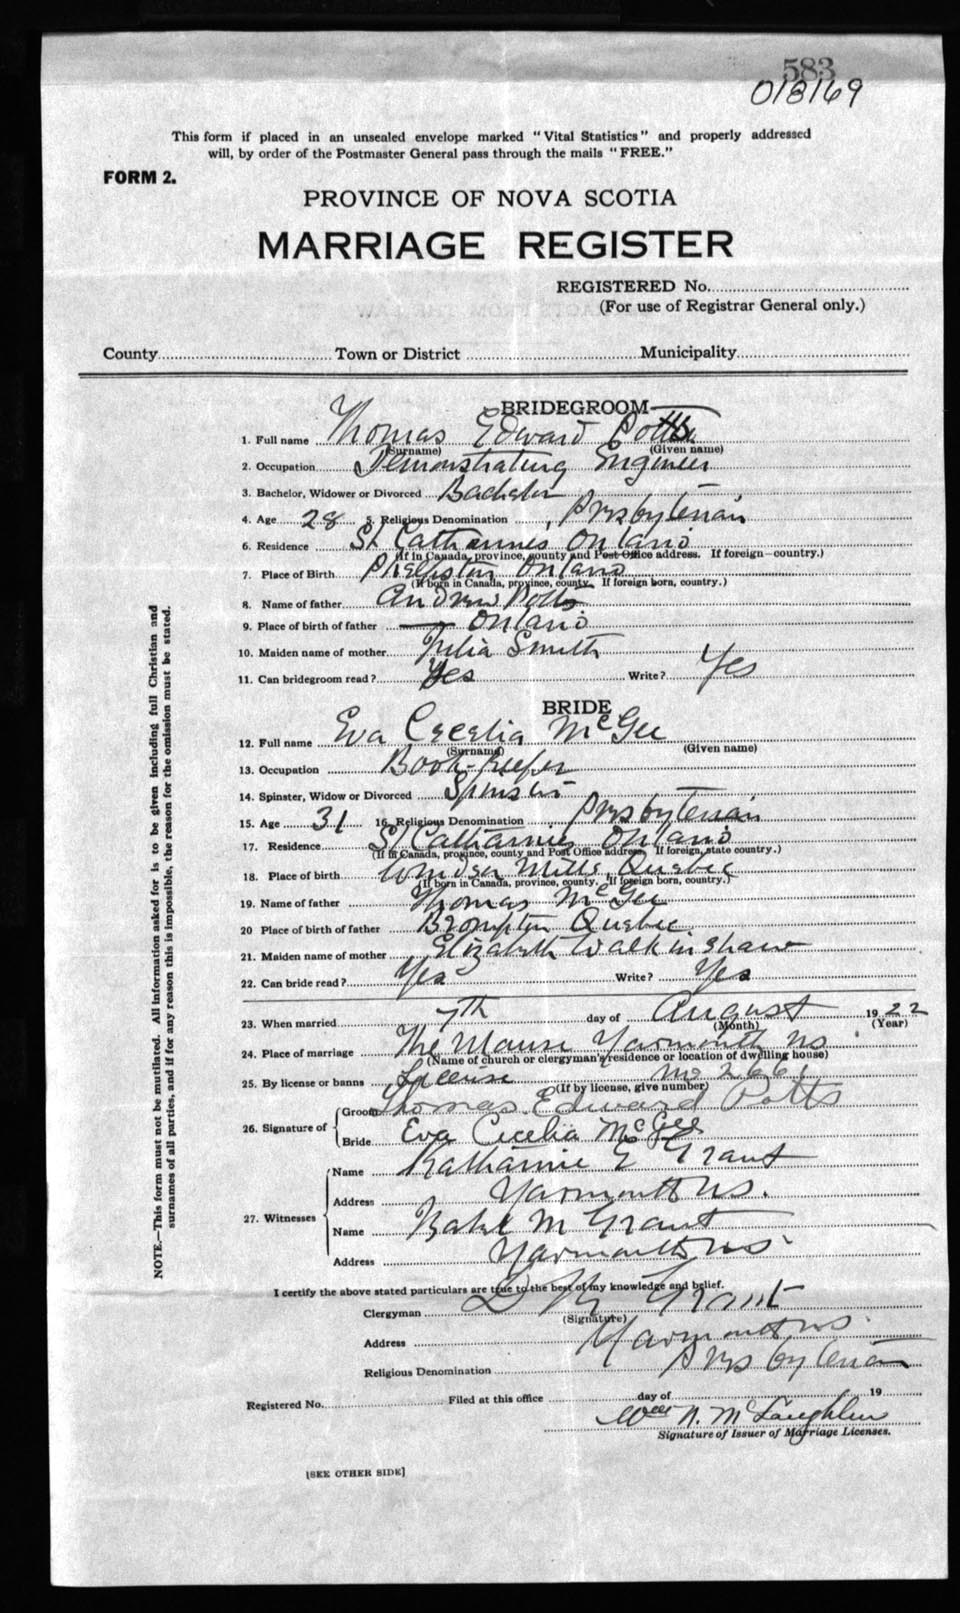 583
018169
This form if placed in an unsealed envelope marked "Vital Statistics" and properly addressed
will, by order of the Postmaster General pass through the mails "FREE."
FORM 2.
PROVINCE OF NOVA SCOTIA
MARRIAGE REGISTER
REGISTERED No.
(For use of Registrar General only.)
County Town or District Municipality
BRIDEGROOM
1. Full name Thomas Edward Potts
(Surname) (Given name)
2. Occupation Demonstrating Engineer
3. Bachelor, Widower or Divorced Bachelor
4. Age 28 5. Religious Denomination Presbyterian
6. Residence St Catharines Ontario
(If in Canada, province, county and Post Office address. If foreign—country.)
7. Place of Birth Ontario
(If born in Canada, province, county. If foreign born, country.)
8. Name of father Andrew Potts
9. Place of birth of father Ontario
10. Maiden name of mother Julia Smith
11. Can bridegroom read? Yes Write? Yes
BRIDE
12. Full name Eva Cecelia McGee
(Surname) (Given name)
13. Occupation Book-Keeper
14. Spinster, Widow or Divorced Spinster
15. Age 31 16. Religious Denomination Presbyterian
17. Residence St Catharines Ontario
(If in Canada, province, county and Post Office address, If foreign, state country.)
18. Place of birth Windsor Mills Quebec
(If born in Canada, province, county. If foreign born, country.)
19. Name of father Thomas McGee
20 Place of birth of father Brompton Quebec
21. Maiden name of mother Elizabeth Walkinshaw
22. Can bride read? Yes Write? Yes
23. When married 7th day of August 1922
(Month) (Year)
24. Place of marriage The Manse Yarmouth NS
(Name of church or clergyman's residence or location of dwelling house)
25. By license or banns License No 2661
(If by license, give number)
26. Signature of Groom Thomas Edward Potts
Bride Eva Cecelia McGee
27. Witnesses Name Katharine E Grant
Address Yarmouth NS.
Name M Grant
Address Yarmouth NS
I certify the above stated particulars are true to the best of my knowledge and belief.
Clergyman D K Grant
(Signature)
Address Yarmouth NS.
Religious Denomination Presbyterian
Registered No. Filed at this office day of 19
Wm N. McLaughlin
Signature of Issuer of Marriage Licenses.
[SEE OTHER SIDE]
NOTE.—This form must not be mutilated. All information asked for is to be given including full Christian and
surnames of all parties, and if for any reason this is impossible, the reason for the omission must be stated.